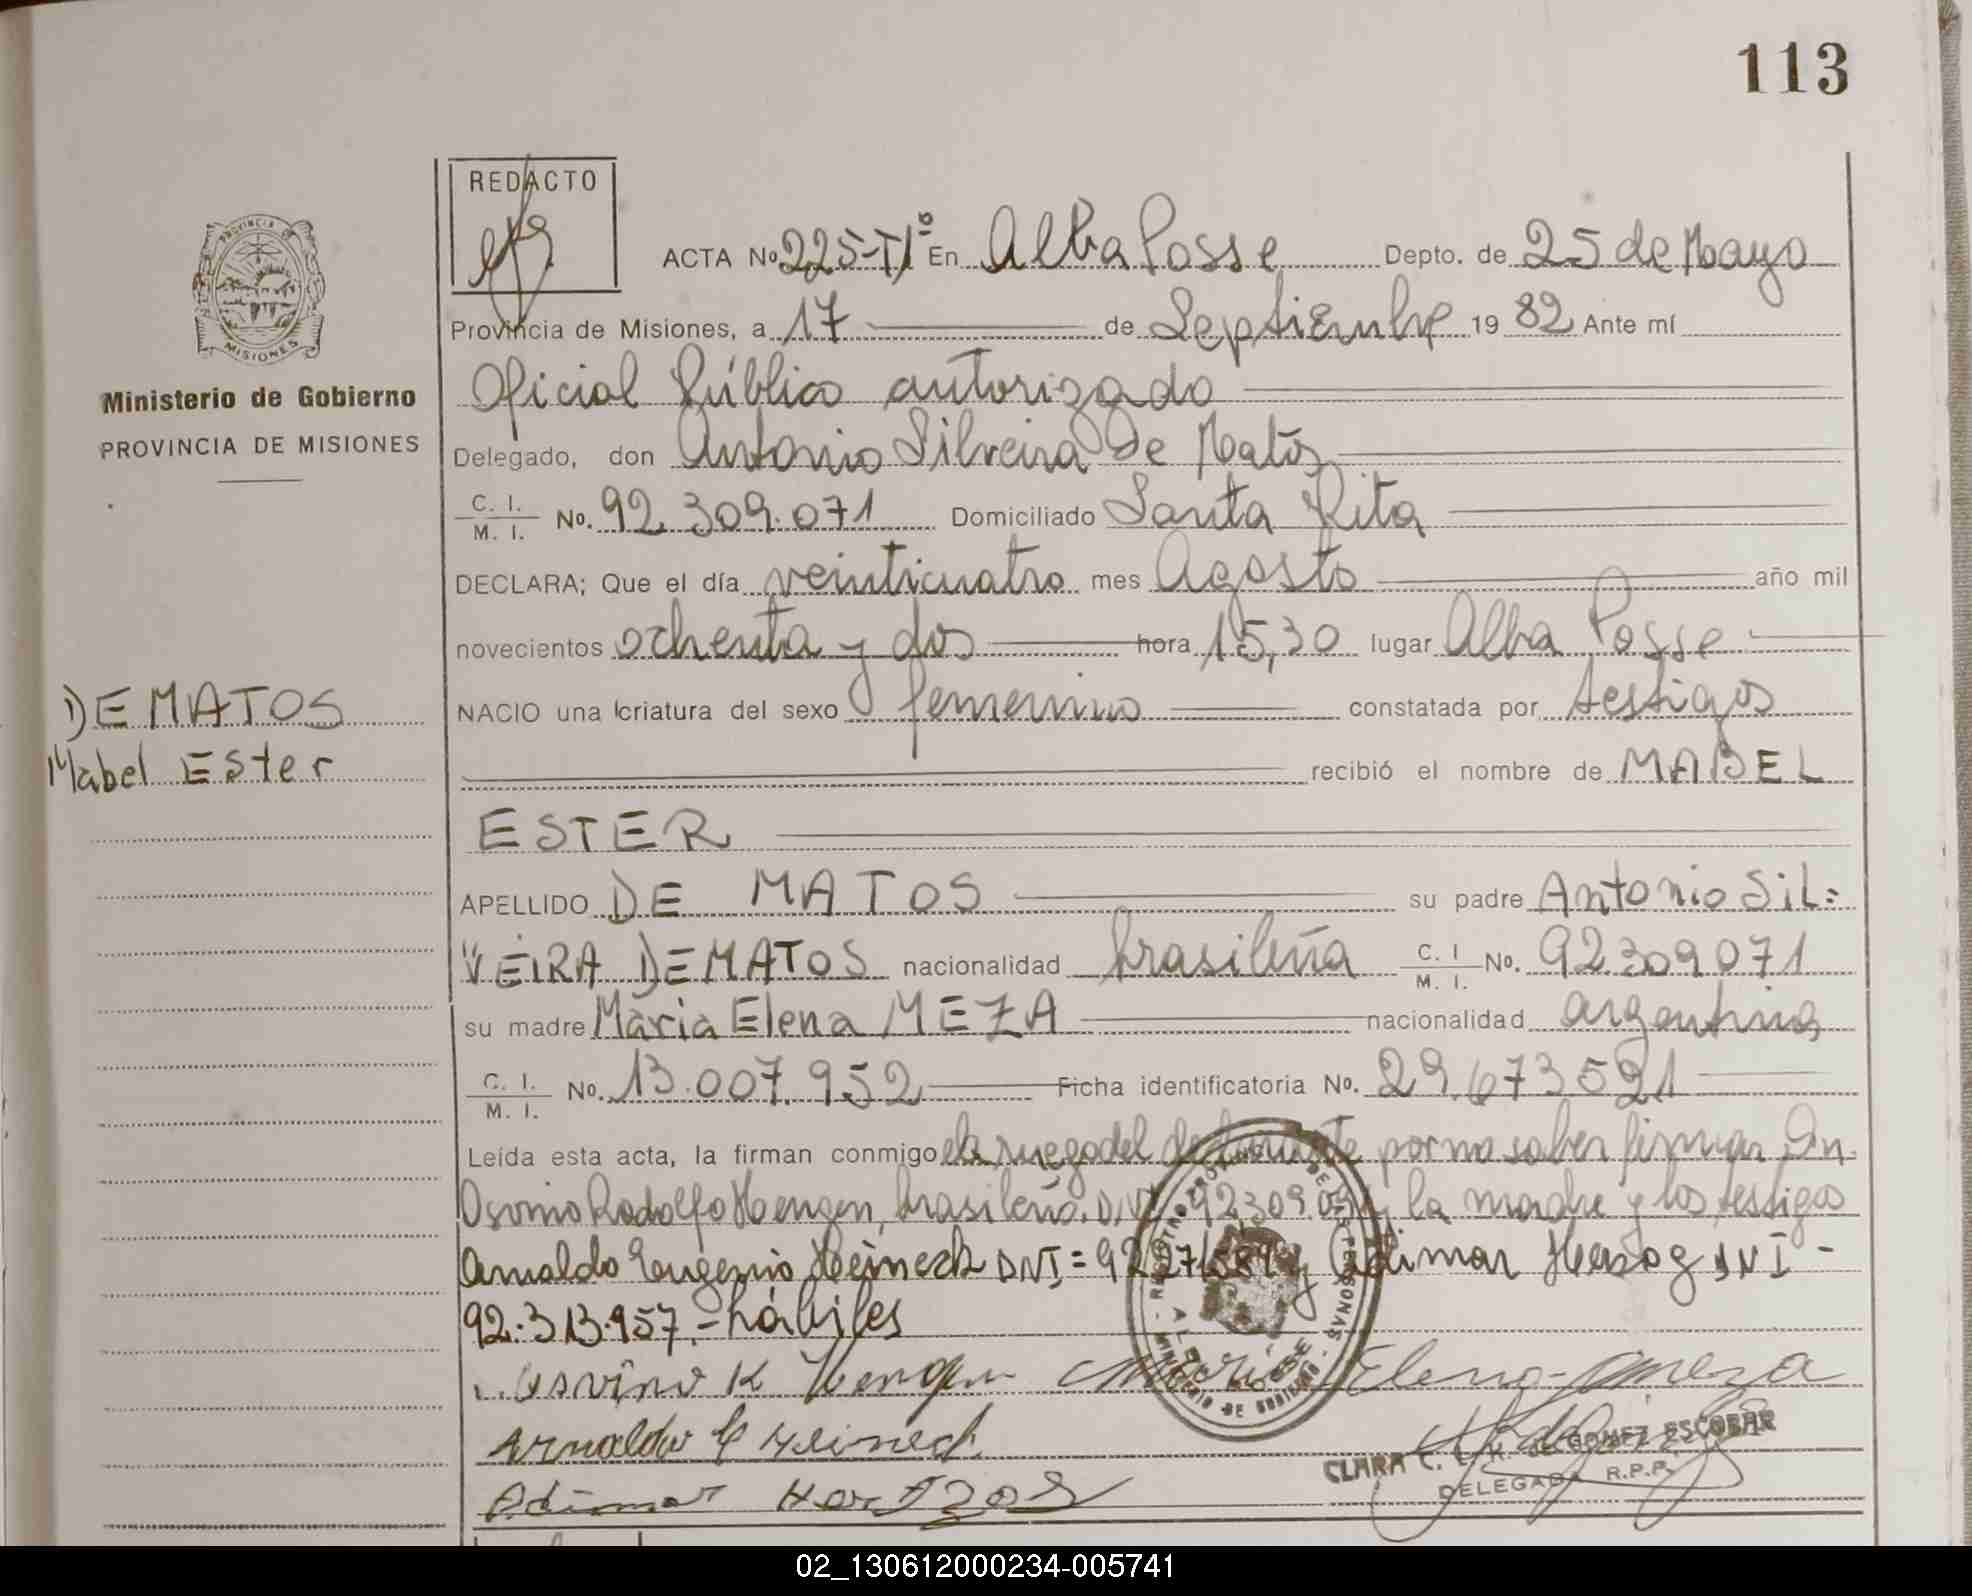 113
REDACTO
PROVINCIA DE
MISIONES
Ministerio de Gobierno
PROVINCIA DE MISIONES
ACTA No 225-T1º En Alba Posse Depto. de 25 de Mayo
Provincia de Misiones, a 17 de Septiembre 19 82 Ante mí
Oficial Público autorizado
Delegado, don Antonio Silveira De Matos
C. I. M. I. No. 92.309.071 Domiciliado Santa Rita
DECLARA; Que el día veinticuatro mes Agosto año mil
novecientos ochenta y dos hora 15,30 lugar Alba Posse
DE MATOS
NACIO una criatura del sexo femenino constatada por testigos
Mabel Ester
recibió el nombre de MABEL
ESTER
APELLIDO DE MATOS su padre Antonio SiL=
VEIRA DE MATOS nacionalidad brasileña C. I M. I. No. 92.309071
su madre Maria Elena MEZA nacionalidad argentina
C. I. M. I. No. 13.007.952 Ficha identificatoria No. 29.673521
Leída esta acta, la firman conmigo a ruego del declarante por no saber firmar Dn.
Osvino Rodolfo Hengen, brasileño, y la madre y los testigos
Arnaldo Eugenio Heineck DNI= y Adimar Herzog DNI-
92.313.957.- hábiles
Osvino R Hengen Maria Elena meza
Arnaldo E Heineck
CLARA C. DE GOMEZ ESCOBAR
DELEGADA R.P.P.
Adimar Hertzog
02_130612000234-005741